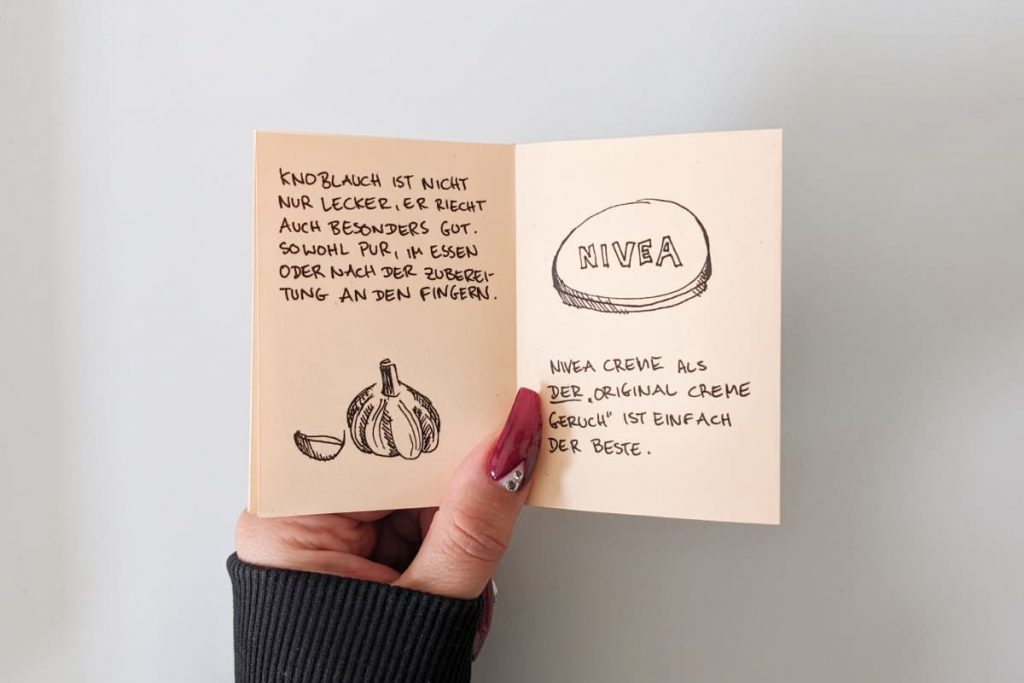 KNOBLAUCH IST NICHT
NUR LECKER, ER RIECHT
AUCH BESONDERS GUT.
SOWOHL PUR, IM ESSEN
ODER NACH DER ZUBEREI-
TUNG AN DEN FINGERN.
NIVEA
NIVEA CREME ALS
DER „ORIGINAL CREME
GERUCH“ IST EINFACH
DER BESTE.